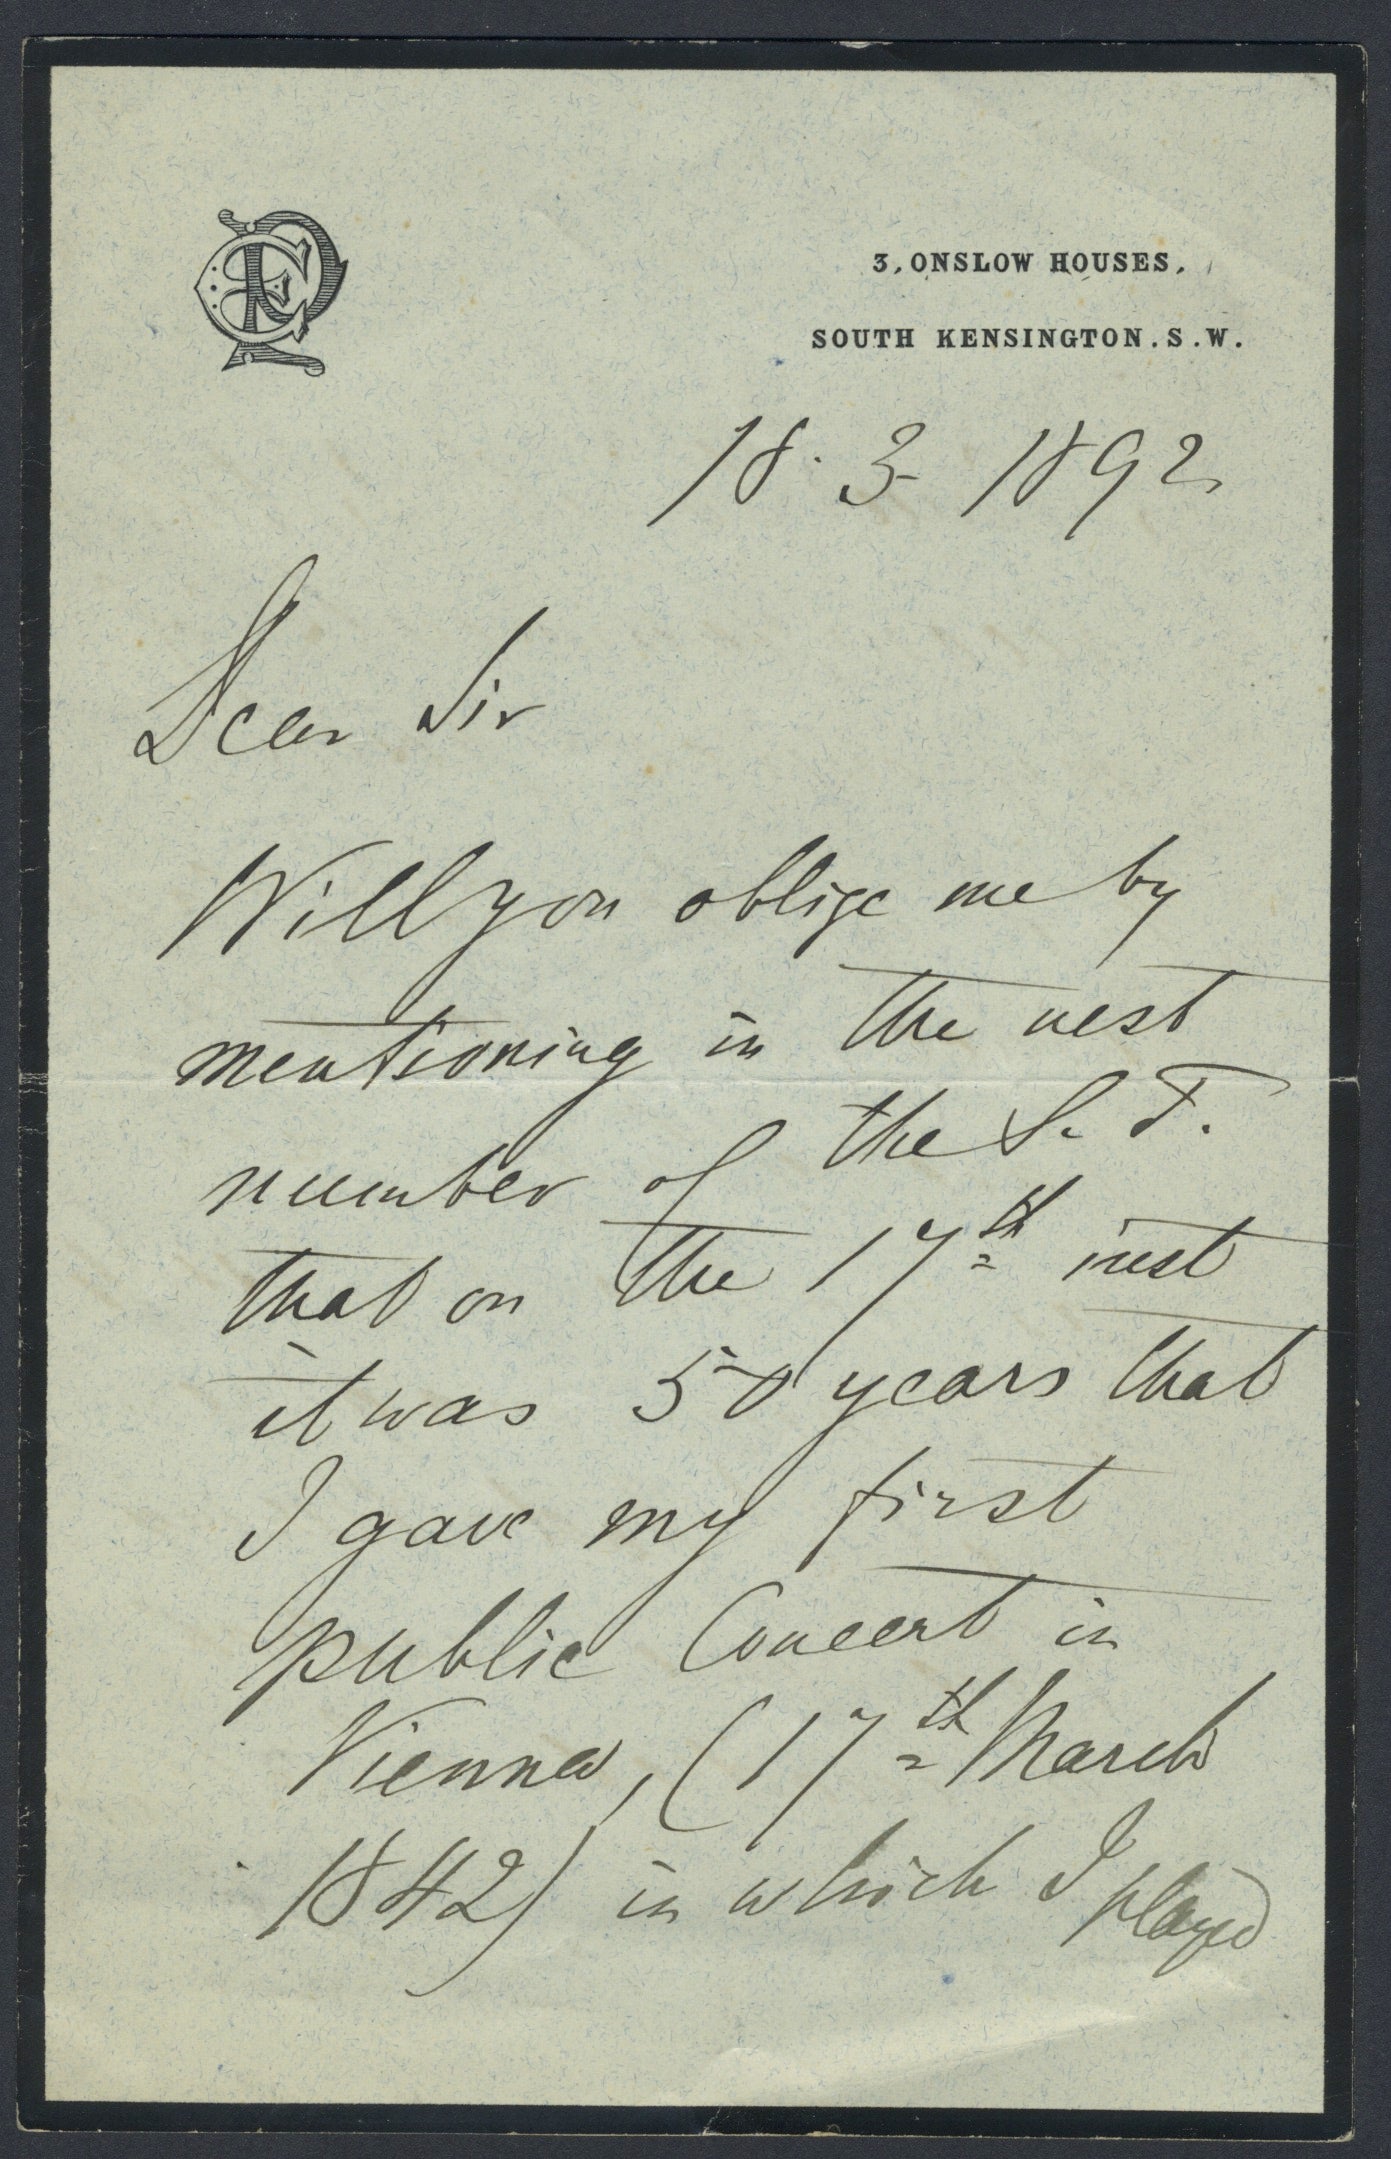 3, ONSLOW HOUSES,
SOUTH KENSINGTON. S. W.
18. 3 1892
Dear Sir
Will you oblige me by
mentioning in the next
number of the S. T.
that on the 17th inst
it was 50 years that
I gave my first
public Concert in
Vienna, (17th March
1842) in which I played